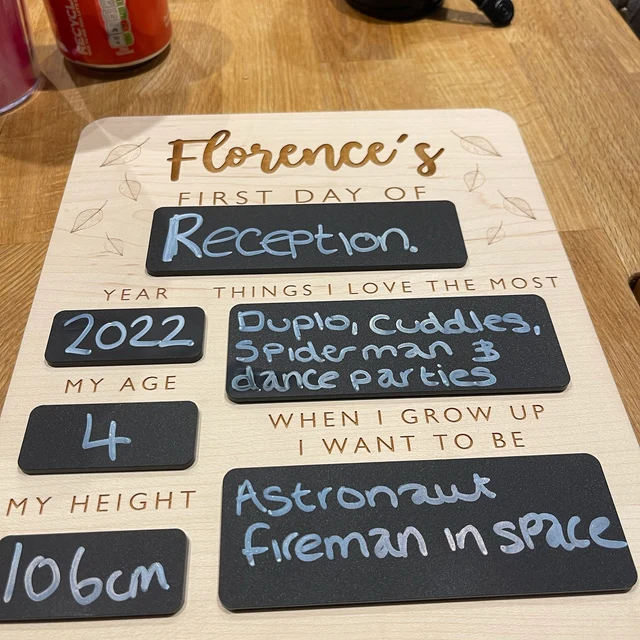 RECYCL
Florence's
FIRST DAY OF
Reception.
YEAR
2022
MY AGE
4
MY HEIGHT
106cm
THINGS I LOVE THE MOST
Duplo, cuddles,
Spiderman &
dance parties
WHEN I GROW UP
I WANT TO BE
Astronaut
fireman in space